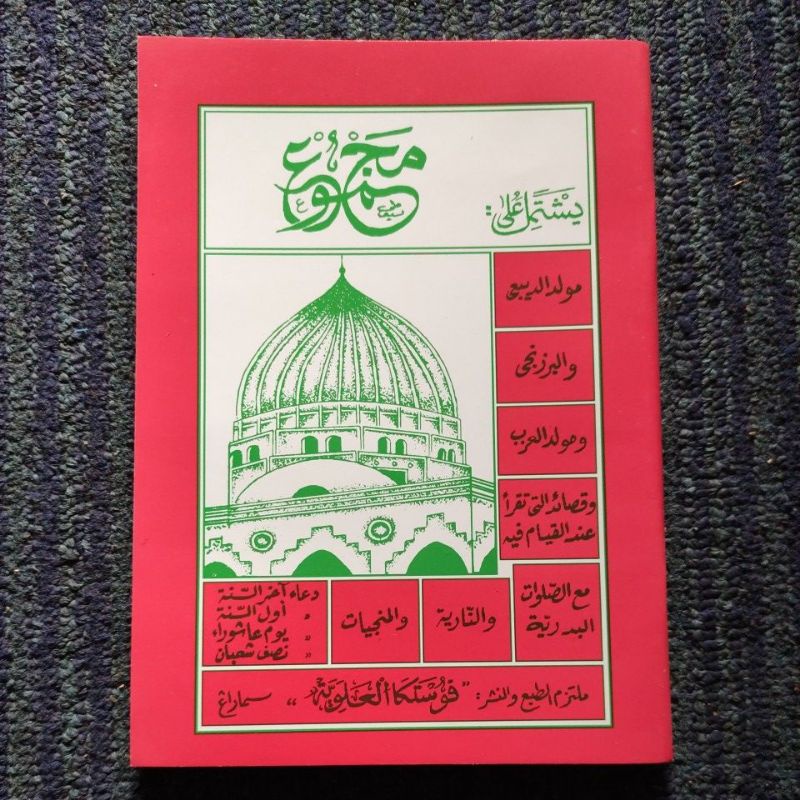 مجموع
يشتمل على:
مولد الديبعي
والبرزنجى
ومولد العزب
وقصائد التى تقرأ
عند القيام فيه
مع الصلوات
البدرية
والنارية
والمنجيات
دعاء آخر السنة
" أول السنة
" يوم عاشوراء
" نصف شعبان
ملتزم الطبع والنشر: "فوستكا العلوية" سماراڠ